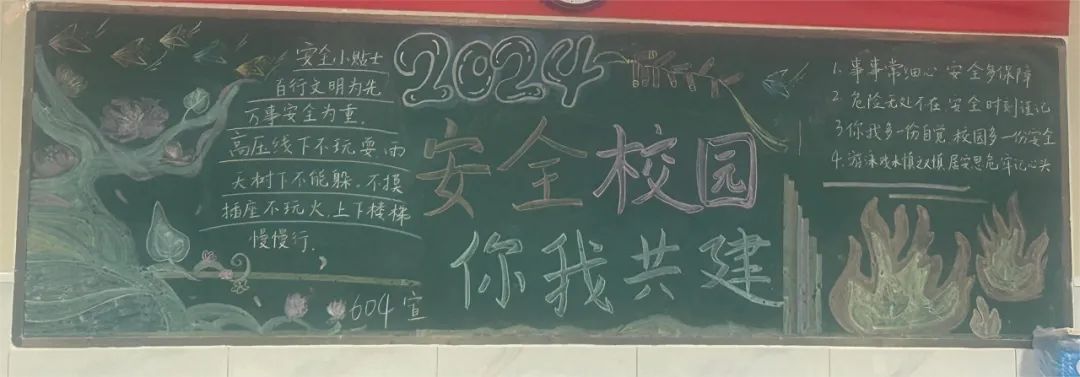 安全小贴士
百行文明为先
万事安全为重.
高压线下不玩耍雨
天树下不能躲.不摸
插座不玩火.上下楼梯
慢慢行.
604宣
2024
安全校园
你我共建
1. 事事常细心 安全多保障
2. 危险无处不在 安全时刻谨记
3 你我多一份自觉 校园多一份安全
4. 游泳戏水慎之又慎 居安思危牢记心头